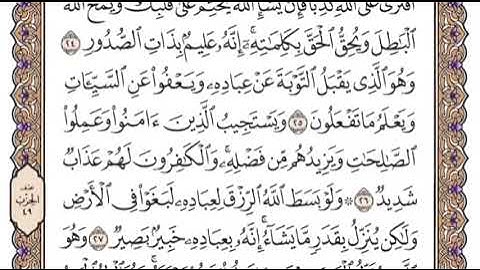 افترى على الله كذبا فإن يشإ الله يختم على قلبك ويمح الله
ٱلۡبَٰطِلَ وَيُحِقُّ ٱلۡحَقَّ بِكَلِمَٰتِهِۦٓۚ إِنَّهُۥ عَلِيمُۢ بِذَاتِ ٱلصُّدُورِ ٢٤
وَهُوَ ٱلَّذِي يَقۡبَلُ ٱلتَّوۡبَةَ عَنۡ عِبَادِهِۦ وَيَعۡفُواْ عَنِ ٱلسَّيِّـَٔاتِ
وَيَعۡلَمُ مَا تَفۡعَلُونَ ٢٥ وَيَسۡتَجِيبُ ٱلَّذِينَ ءَامَنُواْ وَعَمِلُواْ
ٱلصَّٰلِحَٰتِ وَيَزِيدُهُم مِّن فَضۡلِهِۦۚ وَٱلۡكَٰفِرُونَ لَهُمۡ عَذَابٞ
شَدِيدٞ ٢٦ ۞ وَلَوۡ بَسَطَ ٱللَّهُ ٱلرِّزۡقَ لِعِبَادِهِۦ لَبَغَوۡاْ فِي ٱلۡأَرۡضِ
وَلَٰكِن يُنَزِّلُ بِقَدَرٖ مَّا يَشَآءُۚ إِنَّهُۥ بِعِبَادِهِۦ خَبِيرُۢ بَصِيرٞ ٢٧ وَهُوَ
نصف
الحزب
٤٩